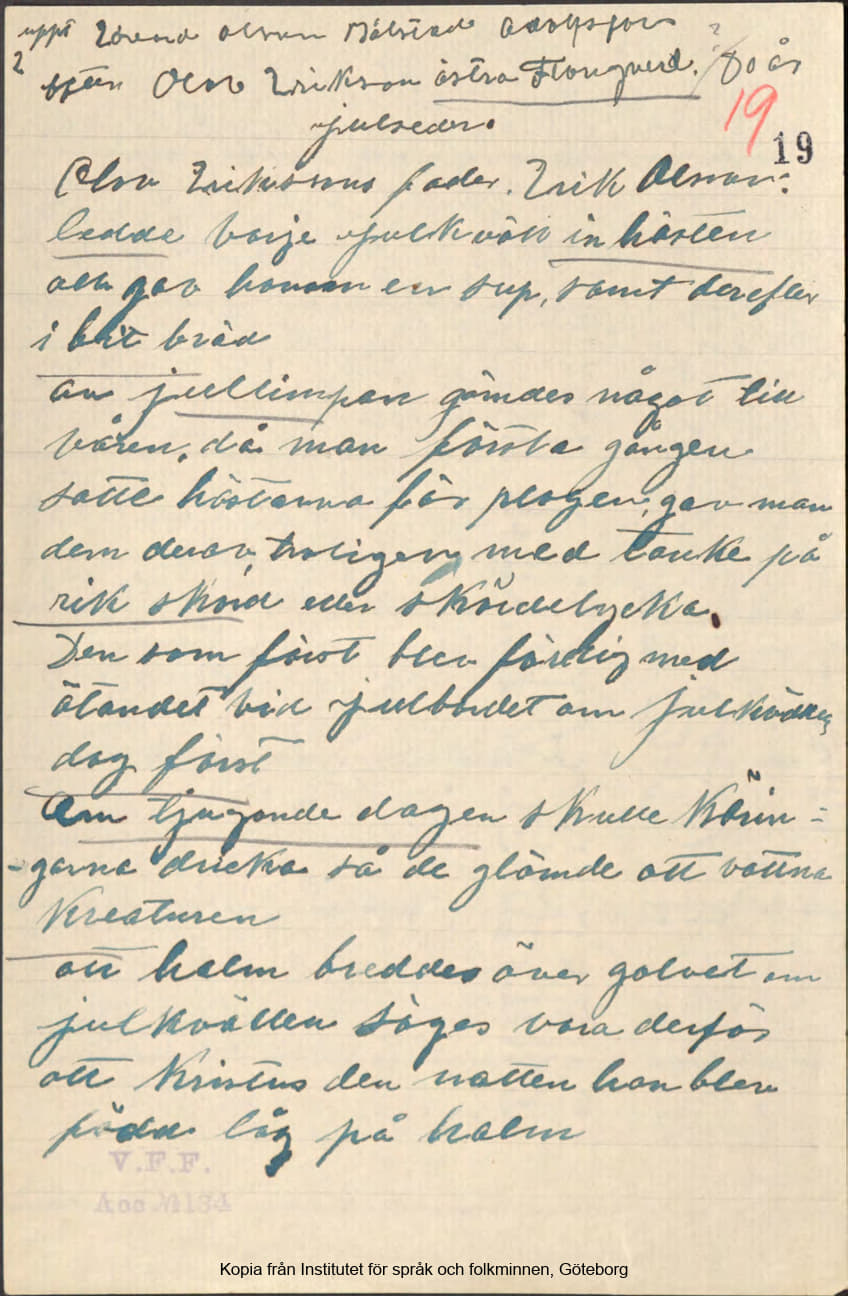 uppt Edvard Olsson Mölstad Adolfsfors
2
Olov Erikson östra Flougnerd. 80 år
19
julseder.
19
Olov Eriksons fader. Erik Olsson:
ledde varje julkväll in hästen
och gav honom en sup, samt derefter
i bit bröd
av jullimpan gömdes något till
våren, då man första gången
satte hästarna för plogen, gav man
dem derav, troligen med tanke på
rik skörd eller skördelycka.
Den som först blev färdig med
ätandet vid julbordet om julkvällen
dog först
Am tjugonde dagen skulle Kärin-
-garna dricka så de glömde att vattna
Kreaturen
att halm breddes över golvet om
julkvällen säges vara derför
att Kristus den natten han blev
född låg på halm
V.F.F.
Acc № 134
Kopia från Institutet för språk och folkminnen, Göteborg